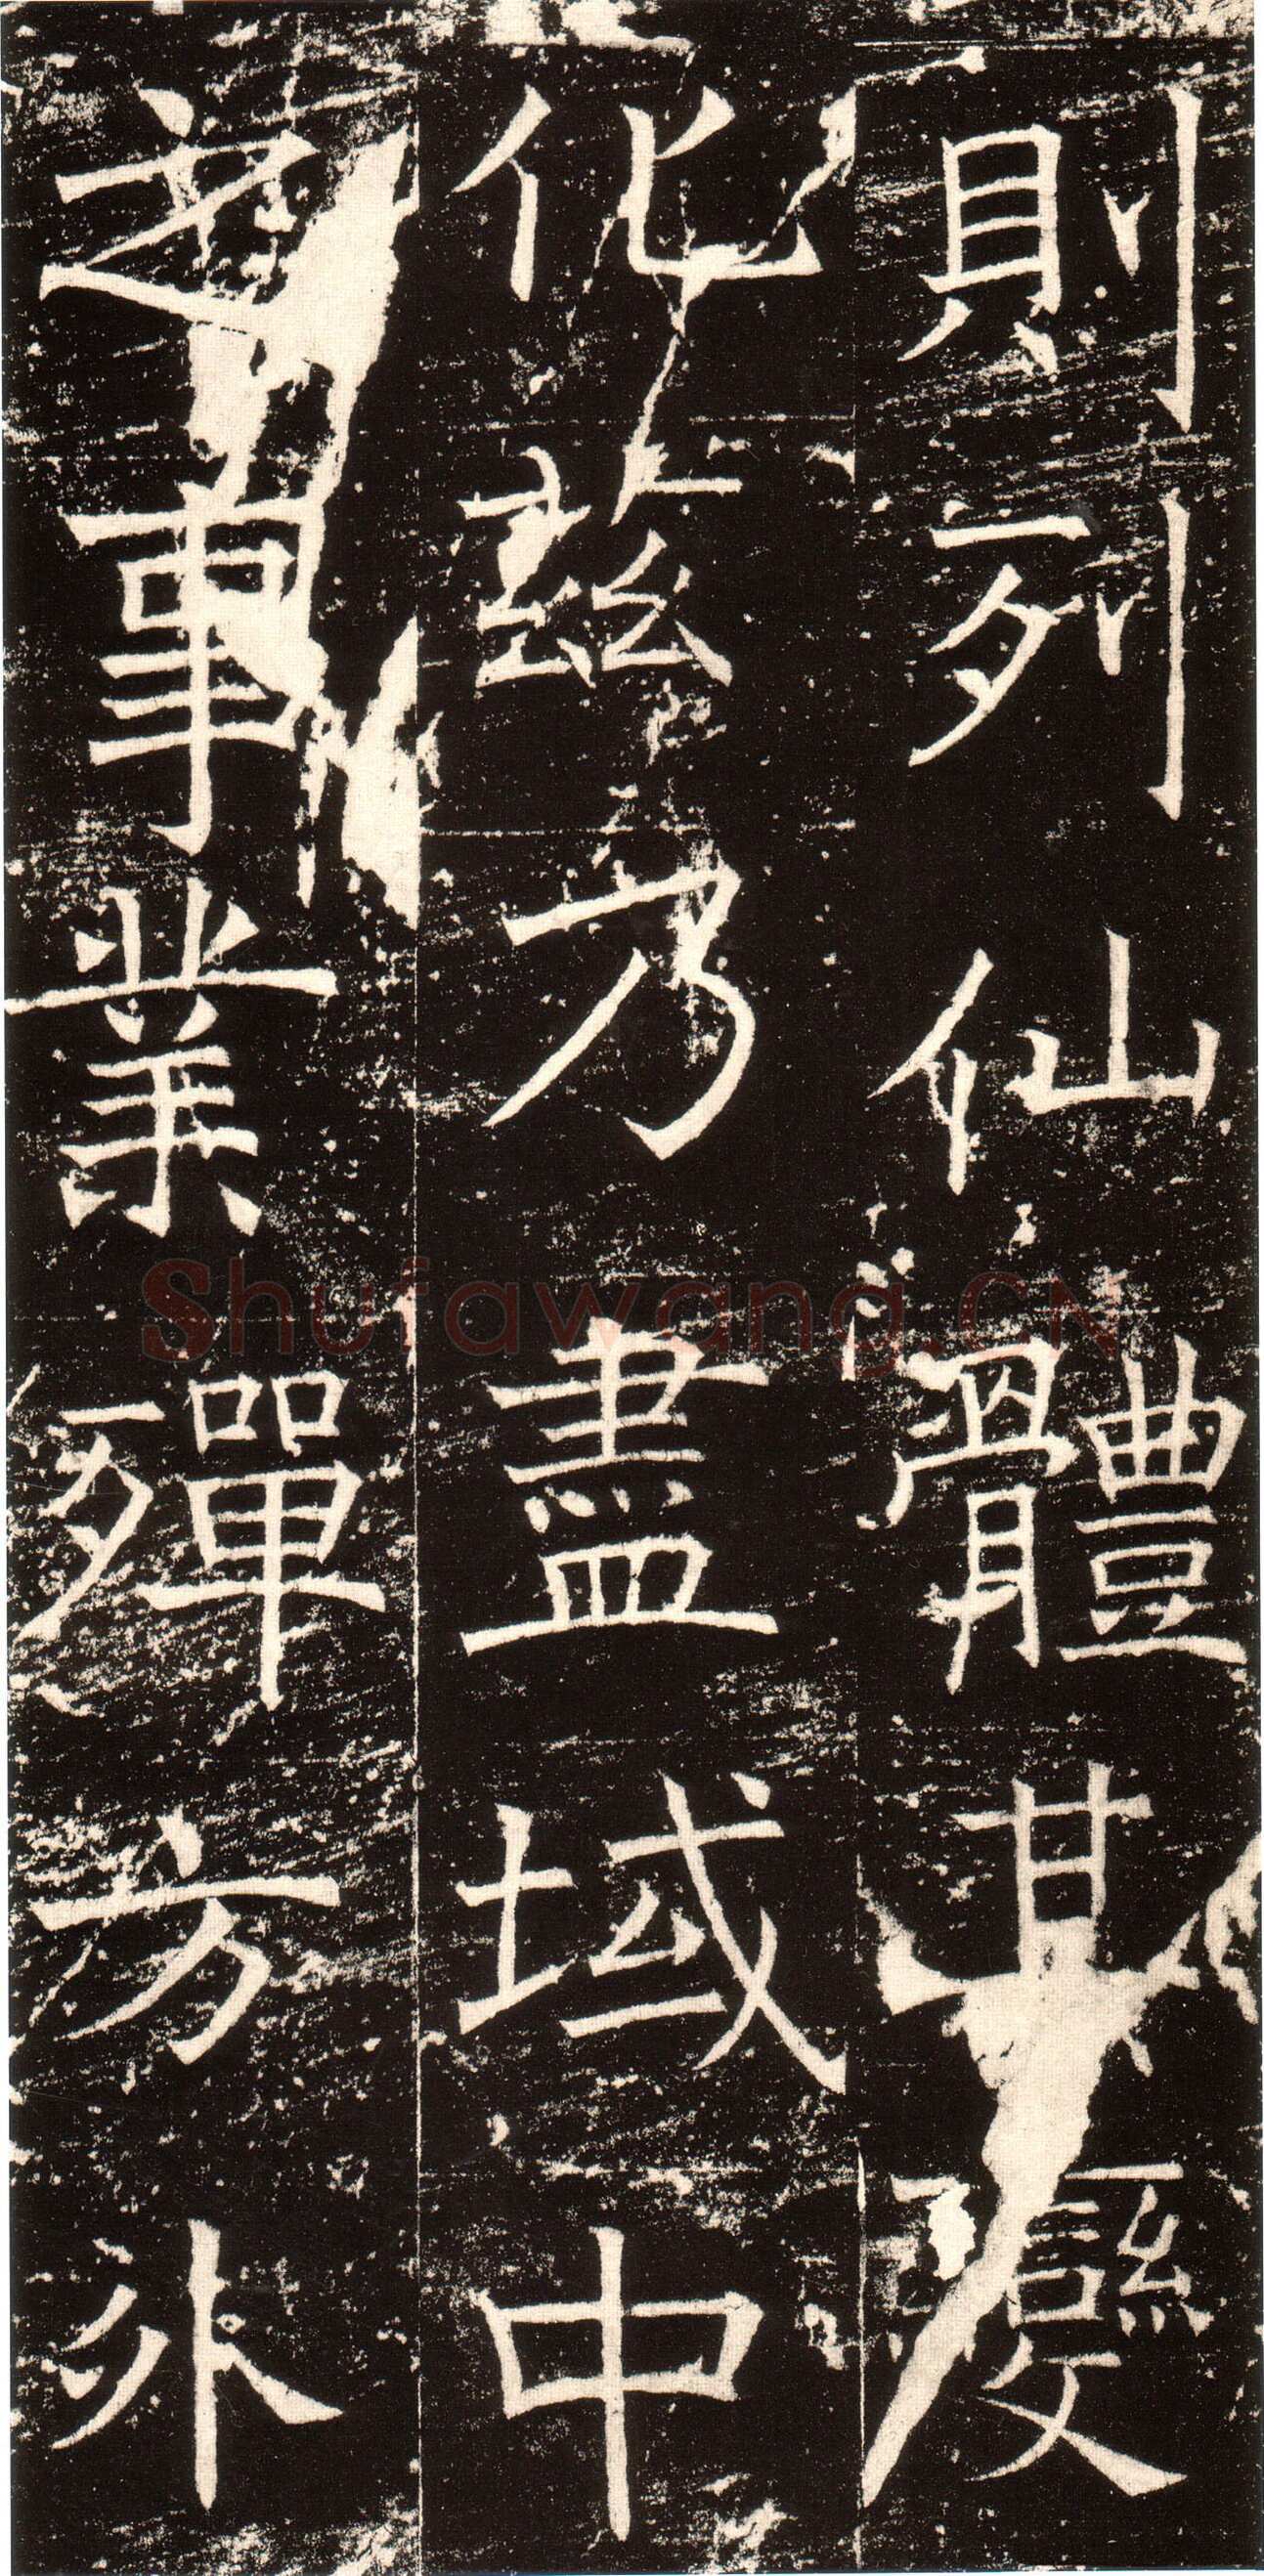 則列仙體其變
化茲乃盡域中
之事業殫方外
Shufawang.CN